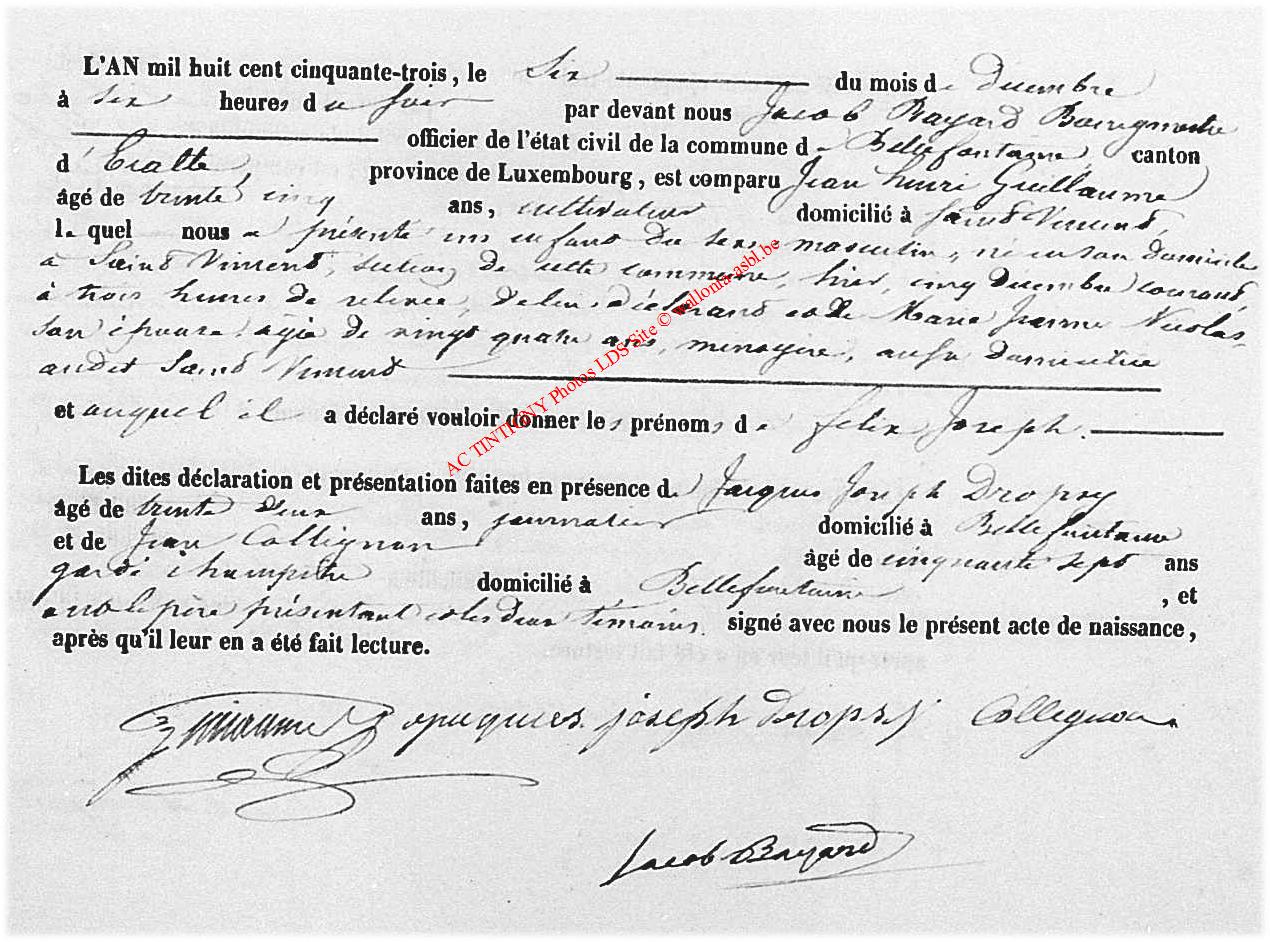 L'AN mil huit cent cinquante-trois, le Six du mois de Décembre
à six heures du soir par devant nous Jacob Bayard Bourgmestre
officier de l'état civil de la commune de Bellefontaine, canton
d'Etalle, province de Luxembourg, est comparu Jean henri Guillaume
âgé de trente cinq ans, cultivateur domicilié à Saint Vincent,
le quel nous a présenté un enfant du sexe masculin, né en son domicile
à Saint Vincent, section de cette commune, hier, cinq Décembre courant,
à trois heures de relevée, de lui Déclarant et de Marie Jeanne Nicolas,
son épouse, agée de vingt quatre ans, menagère, aussi domiciliée
audit Saint Vincent
et auquel il a déclaré vouloir donner les prénoms de félix Joseph.
Les dites déclaration et présentation faites en présence de Jacques Joseph Dropsy
âgé de trente deux ans, journalier domicilié à Bellefontaine
et de Jean Collignon âgé de cinquante sept ans
garde champêtre domicilié à Bellefontaine, et
le pere présentant et les deux témoins signé avec nous le présent acte de naissance,
après qu'il leur en a été fait lecture.
Guillaume joseph Dropsy Collignon
Jacob Bayard
AC TINTIGNY Photos LDS Site © wallonia-asbl.be